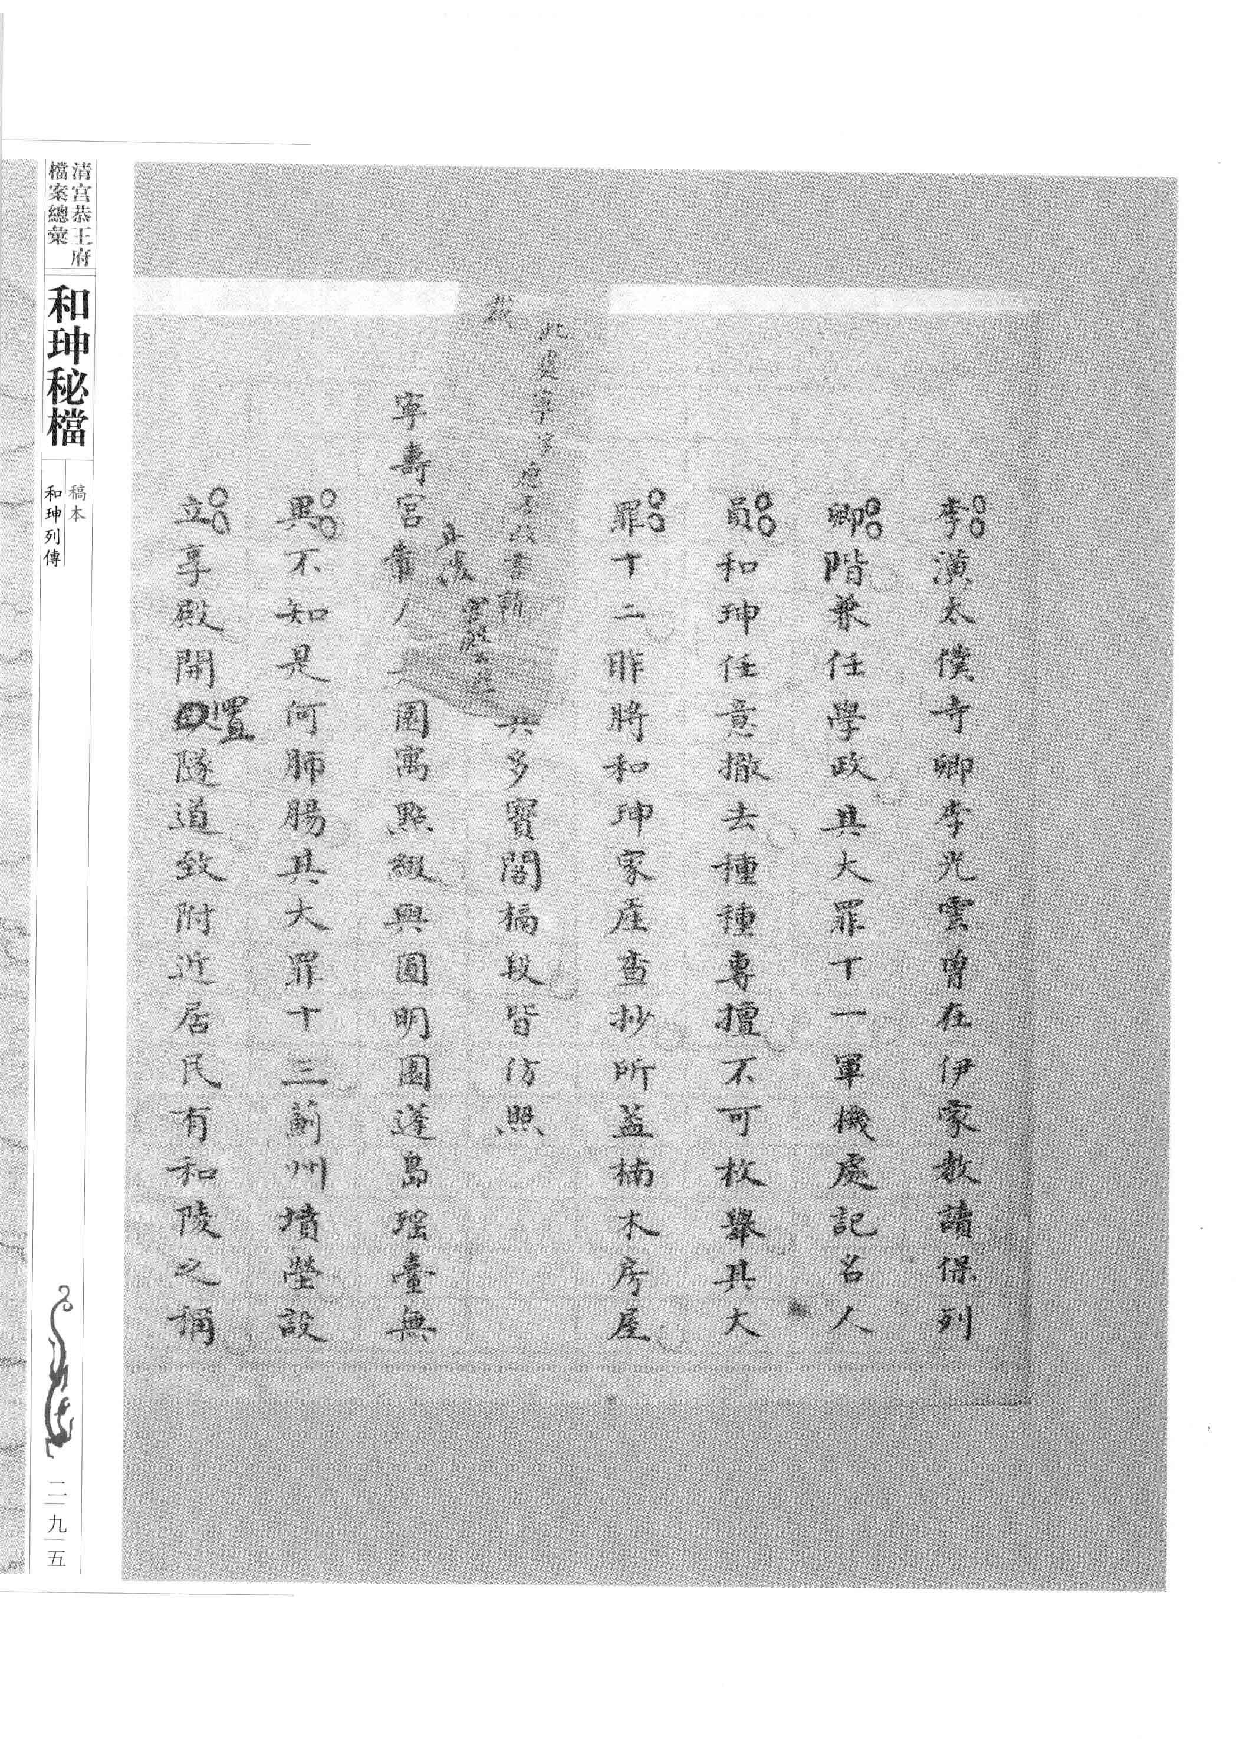 李潢太僕寺卿李光雲曾在伊家教讀保列
卿階兼任學政其大罪十一軍機處記名人
員和珅任意撤去種種專擅不可枚舉其大
罪十二昨將和珅家產查抄所蓋楠木房屋
其多寶閣槅段皆仿照
此處寧字
寧壽宮 園寓點綴與圓明園蓬島瑤臺無
異不知是何肺腸其大罪十三薊州墳塋設
立享殿開置隧道致附近居民有和陵之稱
清宮恭王府
檔案總彙
和珅秘檔
稿本
和珅列傳
二九五